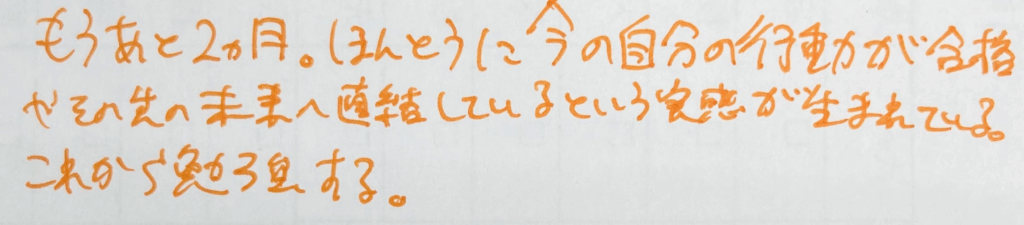 もうあと2ヵ月。ほんとうに今の自分の行動が合格
やその先の未来へ直結しているという実感が生まれている。
これから勉強する。